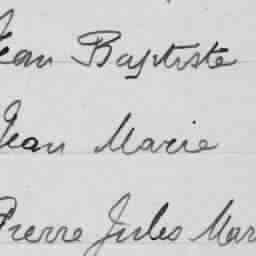 Jean Baptiste
Jean Marie
Pierre Jules Mar